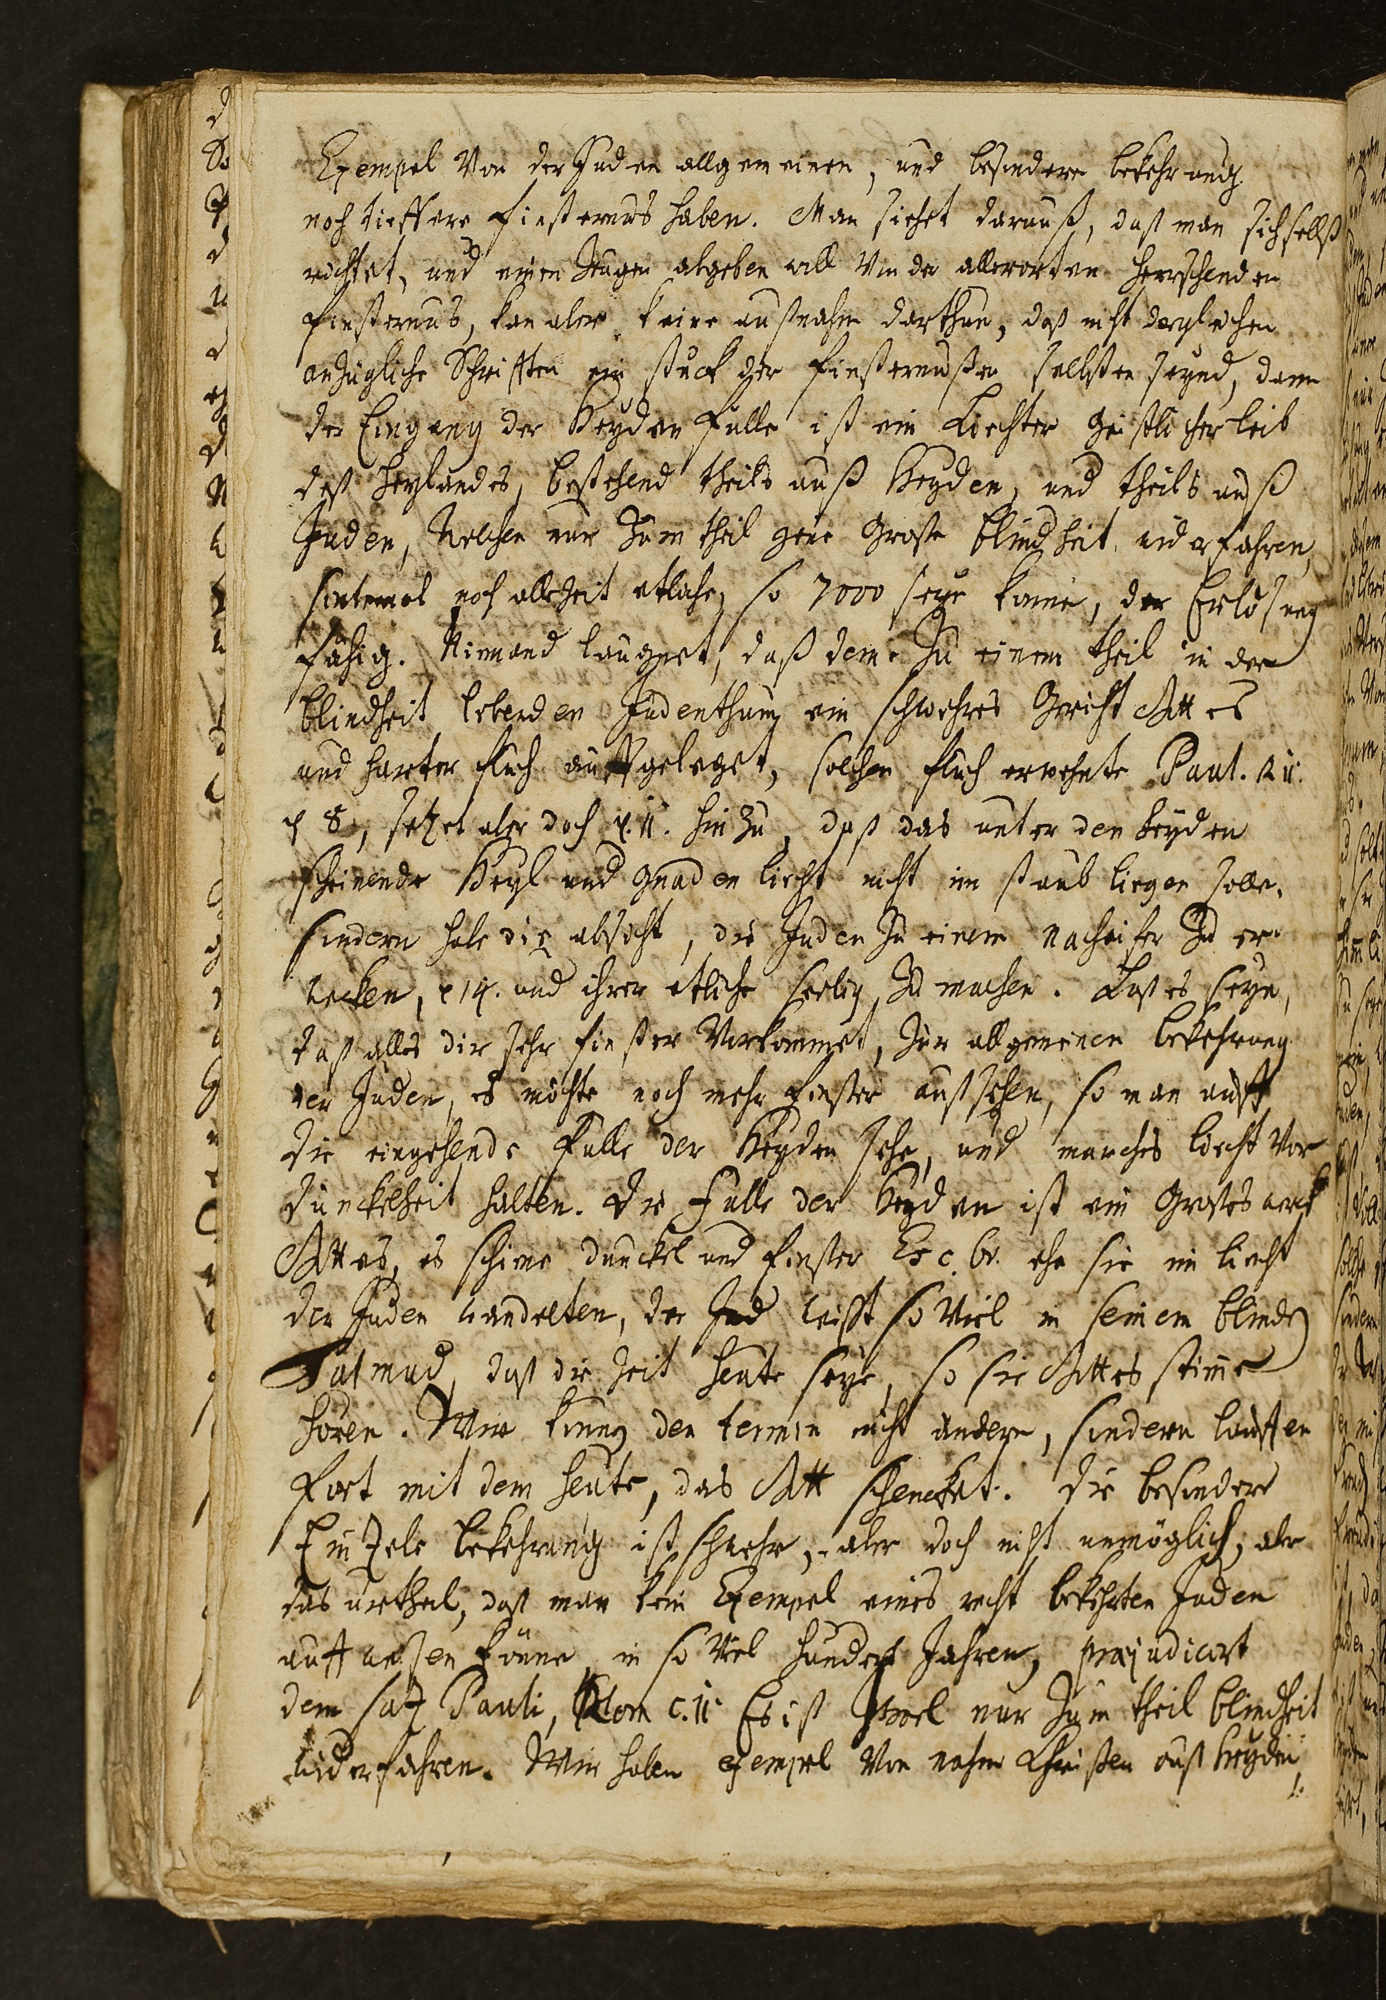 Exempel von der Juden allgemeinen, und besondern bekehrung
noch tieffere finsternus haben. Man siehet darauß, daß man sich selbst
richtet, und einen Zeugen abgeben will von der allerorten herrschenden
finsternus, kan aber keine außnahm darthun, daß nicht dergleichen
anzügliche Schrifften ein stuck der finsternußen selbsten seynd, dann
der Eingang der Heyden fülle ist ein Liechter geistlicher leib
deß heylandes, bestehend theils auß Heyden, und theils auß
Juden, welchen nur zum theil jene große blindheit widerfahren,
sintemal noch allezeit etliche, so 7000 seye könne, der Erlösung
fähig. Niemand laugnet, daß dem zu einem theil in der
blindheit lebenden Judenthum ein schwehres Gericht Gottes
und harter fluch auffgeleget, solchen fluch erwehnte Paul. R 11.
℣ 8, setzet aber doch ℣. 11. hinzu, daß das unter den heyden
scheinende Heyl und gnaden liecht nicht im staub liegen solle,
sondern habe die absicht, die Juden zu einem nacheifer zu er-
wecken, ℣ 14. und ihrer etliche seelig zu machen. Laß es seyn,
daß alles dir sehr finster vorkommet, zur allgemeinen bekehrung
der Juden, es möchte noch mehr finster außsehen, so man auff
die eingehende fülle der Heyden sehe, und manches liecht vor
dunckelheit halten. Die fülle der Heyden ist ein großes werk
Gottes, es schiene dunckel und finster Es c. 60. ehe sie im liecht
der Juden wandelten, der Jud weißt so viel in seinem blinden
Talmud, daß die Zeit heute seye, so sie Gottes stimme
hören. Wir können den termin nicht ändern, sondern lauffen
fort mit dem heute, das Gott schencket. Die besondere
Einzele bekehrung ist schwehr, aber doch nicht unmöglich, aber
das urtheil, daß man kein Exempel eines recht bekehrten Juden
auffweisen könne in so viel hundert Jahren, præjudicirt
dem satz Pauli, Rom c. 11 Es ist Israel nur zum theil blindheit
widerfahren. Wir haben exempel von nahm Christen auß heyden,